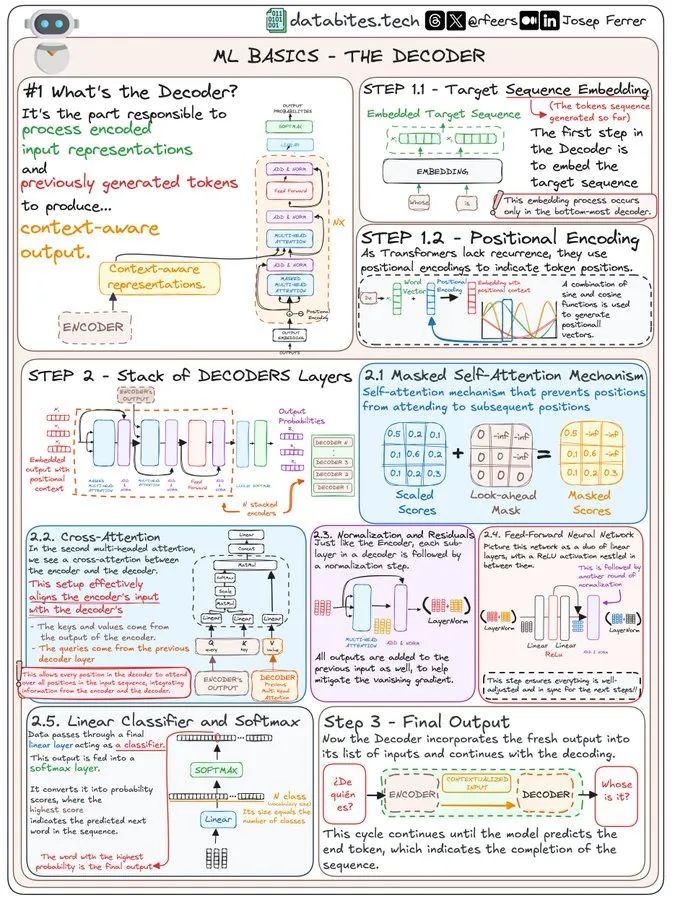 databites.tech @rfeers Josep Ferrer
ML BASICS - THE DECODER
#1 What's the Decoder?
It's the part responsible to
process encoded
input representations
and
previously generated tokens
to produce...
context-aware
output.
Context-aware
representations.
ENCODER
OUTPUT
PROBABILITIES
SOFTMAX
LINEAR
ADD & NORM
Feed Forward
ADD & NORM
MULTI-HEAD
ATTENTION
NX
ADD & NORM
MASKED
MULTI-HEAD
ATTENTION
Positional
Encoding
OUTPUT
EMBEDDING
OUTPUTS
STEP 1.1 - Target Sequence Embedding
Embedded Target Sequence
(The tokens sequence
generated so far)
EMBEDDING
Whose
is
The first step in
the Decoder is
to embed the
target sequence
This embedding process occurs
only in the bottom-most decoder.
STEP 1.2 - Positional Encoding
As Transformers lack recurrence, they use
positional encodings to indicate token positions.
De
Word
Vector
Positional
Encoding
Embedding with
positional context
A combination of
sine and cosine
functions is used
to generate
positionall
vectors.
STEP 2 - Stack of DECODERS Layers
ENCODER'S
OUTPUT
Embedded
output with
positional
context
MASKED
MULTI-HEAD
ATTENTION
ADD &
NORM
MULTI-HEAD
ATTENTION
ADD &
NORM
Feed
Forward
ADD &
NORM
LINEAR
SOFTMAX
Output
Probabilities
N stacked
encoders
DECODER N
DECODER 3
DECODER 2
DECODER 1
2.1 Masked Self-Attention Mechanism
Self-attention mechanism that prevents positions
from attending to subsequent positions
0.5 0.2 0.1
0.1 0.6 0.2
0.1 0.2 0.3
+
0 -inf -inf
0 0 -inf
0 0 0
=
0.5 -inf -inf
0.1 0.6 -inf
0.1 0.2 0.3
Scaled
Scores
Look-ahead
Mask
Masked
Scores
2.2. Cross-Attention
In the second multi-headed attention,
we see a cross-attention between
the encoder and the decoder.
This setup effectively
aligns the encoder's input
with the decoder's
- The keys and values come from
the output of the encoder.
- The queries come from the previous
decoder layer
This allows every position in the decoder to attend
over all positions in the input sequence, integrating
information from the encoder and the decoder.
Linear
Concat
MatMul
SoftMax
Scale
MatMul
Linear
Linear
Linear
Q
query
K
key
V
value
ENCODER's
OUTPUT
DECODER
Previous
Multi Head
Attention
2.3. Normalization and Residuals
Just like the Encoder, each sub-
layer in a decoder is followed by
a normalization step.
MULTI-HEAD
ATTENTION
ADD & NORM
LayerNorm
All outputs are added to the
previous input as well, to help
mitigate the vanishing gradient.
2.4. Feed-Forward Neural Network
Picture this network as a duo of linear
layers, with a ReLU activation nestled in
between them.
This is followed by
another round of
normalization
LayerNorm
Linear
Linear
ReLu
ADD & NORM
LayerNorm
This step ensures everything is well-
adjusted and in sync for the next steps!!
2.5. Linear Classifier and Softmax
Data passes through a final
linear layer acting as a classifier.
This output is fed into a
softmax layer.
It converts it into probability
scores, where the
highest score
indicates the predicted next
word in the sequence.
The word with the highest
probability is the final output
SOFTMAX
N class
(vocabulary size)
Its size equals the
number of classes
Linear
Step 3 - Final Output
Now the Decoder incorporates the fresh output into
its list of inputs and continues with the decoding.
¿De
quién
es?
ENCODER
CONTEXTUALIZED
INPUT
DECODER
Whose
is it?
This cycle continues until the model predicts the
end token, which indicates the completion of the
sequence.